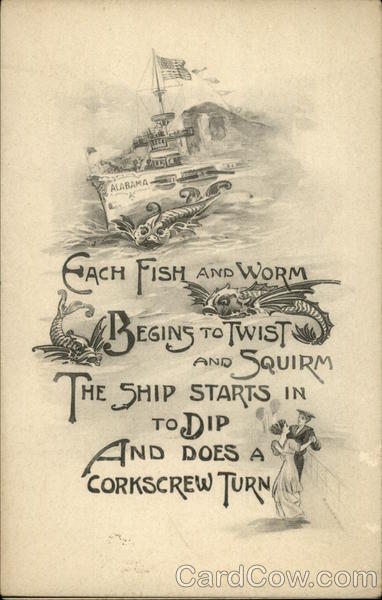 ALABAMA
EACH FISH AND WORM
BEGINS TO TWIST
AND SQUIRM
THE SHIP STARTS IN
TO DIP
AND DOES A
CORKSCREW TURN
CardCow.com